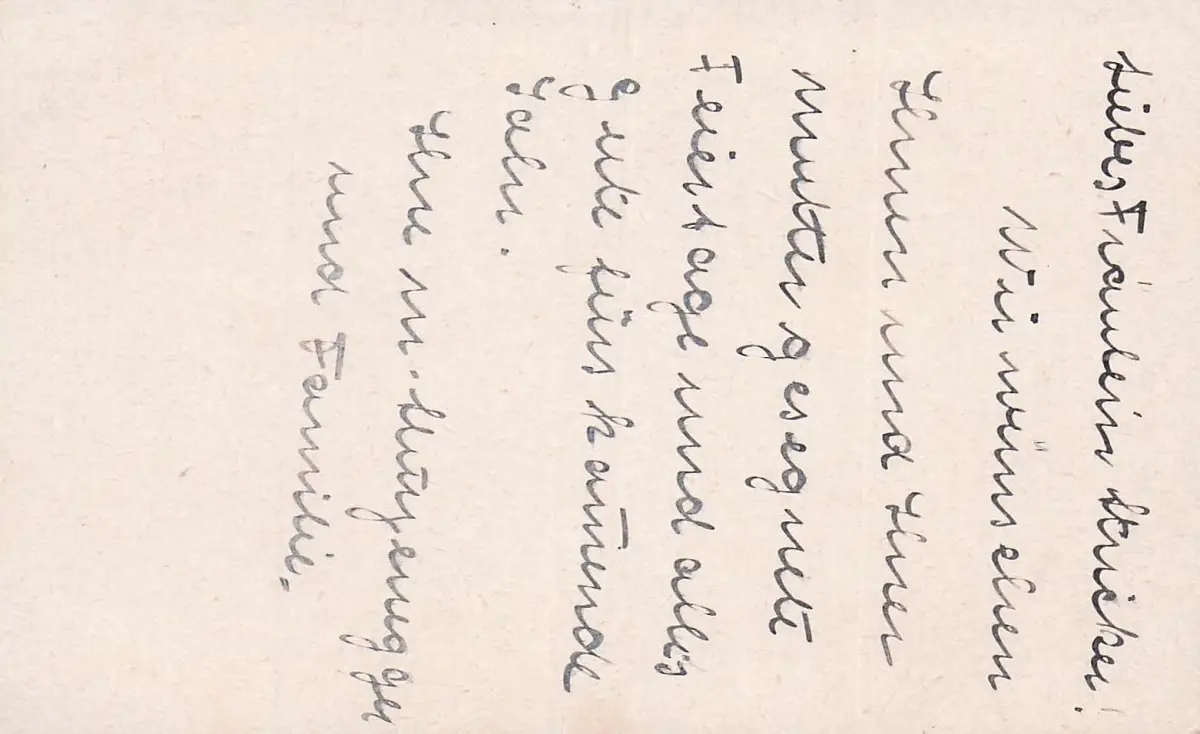 Liebes Fräulein Stricker!
Wir wünschen
Ihnen und Ihrer
Mutter gesegnete
Feiertage und alles
gute fürs kommende
Jahr.
Ihre M.
und Familie.